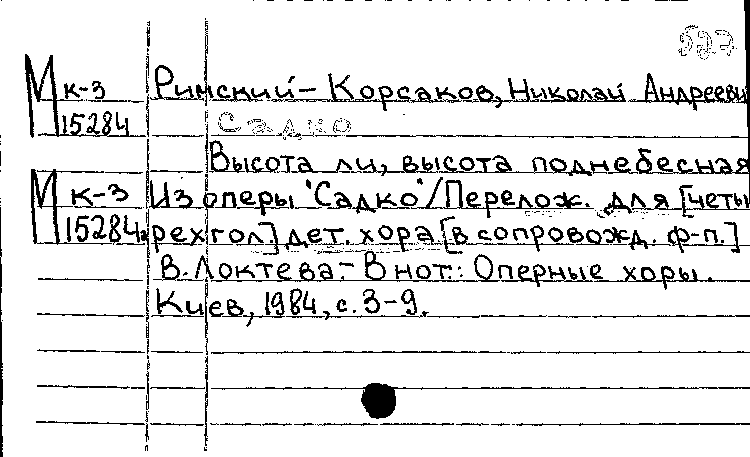 527
М к-3 Римский-Корсаков, Николай Андрееви
15284 Садко
Высота ли, высота поднебесная
М к-3 Из оперы "Садко"/Перелож. для [четы
15284а рехгол] дет. хора [в сопровожд. ф-п.]
В. Локтева.- В нот.: Оперные хоры.
Киев, 1984, с. 3-9.